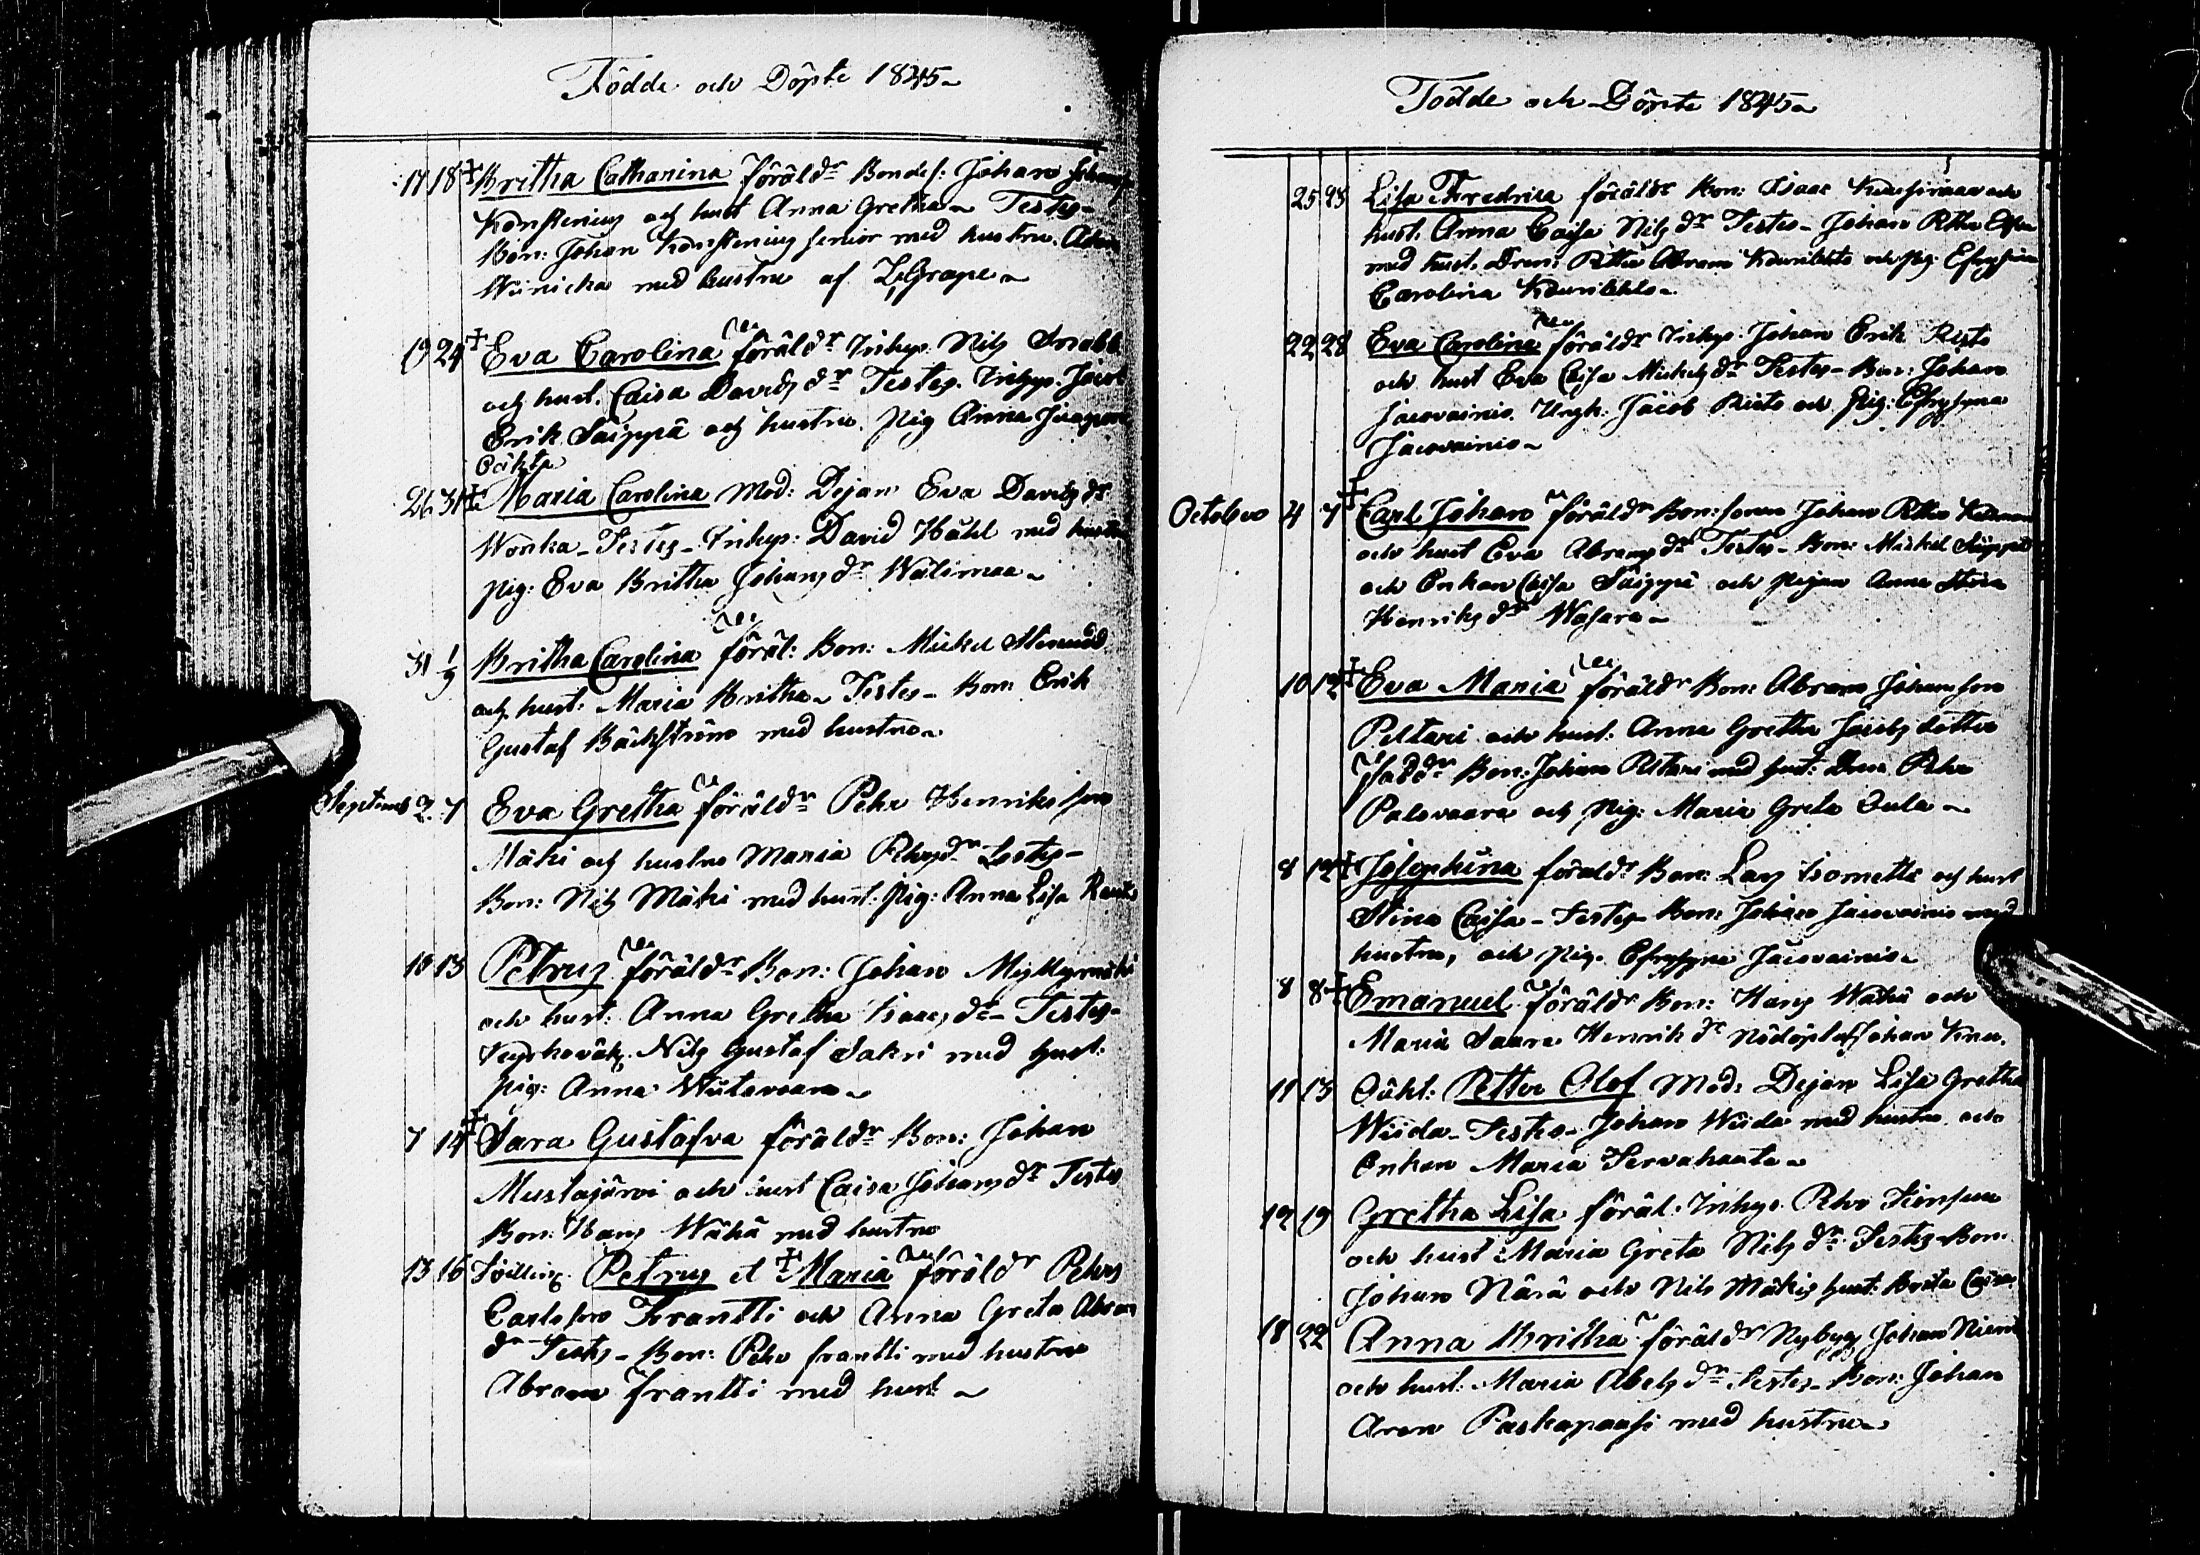 Födde och Döpte 1845
17 18 + Britha Catharina föräldr Bondes: Johan
Konstenius och hust Anna Gretha Testes
Bon: Johan Konstenius senior med hustru.
Winicka med hustru af Grape
19 24 + Eva Carolina föräldr Inhys Nils
och hust. Caisa Davids dr Testes. Inhys. Jacob
Erik Säippä och hustru. pig Anna
Oäkta
26 31 + Maria Carolina Mod: Dejan Eva Davids dr
Wonka Testes Inhys: David Håhl med hustru
pig: Eva Britha Johans dr Wälimaa
31 1/9 Britha Carolina föräl: Bon: Mickel
och hust. Maria Britha Testes Bon: Erik
Gustaf Bäckström med hustru
Septemb 2 7 Eva Gretha föräldr Pehr Henriksson
Mäki och hustru Maria Pehrs dr Testes
Bon: Nils Mäki med hust. pig: Anna Lisa
10 13 Petrus föräldr Bon: Johan Myllymäki
och hust: Anna Gretha Isaacs dr Testes
Kyrkoväk. Nils Gustaf Sakri med hust:
pig: Anna
7 14 + Sara Gustafva föräldr Bon: Johan
Mustajärvi och hust Caisa Johans dr Testes
Bon: Hans Wähä med hustru
13 16 Tvilling. Petrus et + Maria föräldr Pehr
Carlsson Frantti och Anna Greta Abram
dr Testes Bon: Pehr frantti med hustru
Abram frantti med hust
Födde och Döpte 1845
25 28 Lisa Fredrica föräldr Bon: Isaac
hust. Anna Caisa Nils dr Testes Johan Petter
med hust. Dren: Petter Abram och pig:
Carolina
22 28 Eva Carolina föräldr Inhys. Johan Erik Risto
och hust Eva Caisa Mickels dr Testes Bon: Johan
Jacovainio. Yngl: Jacob Risto och Pig: Efrosyna
Jacovainio
October 4 7 + Carl Johan föräldr Bon: sonen Johan Petter
och hust Eva Abrams dr Testes Bon: Mickel Säippä
och Enkan Caisa Säippä och Pigan Anna Stina
Henriks dr Wasara
10 12 + Eva Maria föräldr Bon: Abram Johansson
Peltari och hust: Anna Gretha Jacobs dotter
Faddr Bon: Johan Peltari med hust: Dren Pehr
Palovaara och Pig: Maria Greta Oula
8 12 + Josephina föräldr Bon: Lars Isometsä och hust
Stina Caisa Testes Bon: Johan Jacovainio med
hustru, och pig. Efrosyna Jacovainio
8 8 + Emanuel föräldr Bon: Hans Wähä och
Maria Saara Henrik dr Nödöpt af Johan
11 13 Oäkt: Petter Olof Mod: Dejan Lisa Gretha
Wiida Testes Johan Wiida med hustru och
Enkan Maria Tervahauta
12 19 Gretha Lisa föräl. Inhys. Pehr
och hust Maria Greta Nils dr Testes Bon:
Johan Närä och Nils Mäkis hust: Brita Caisa
18 22 Anna Britha föräldr Nybyg Johan Niemi
och hust: Maria Abels dr Testes Bon: Johan
Aron Paskapaasi med hustru